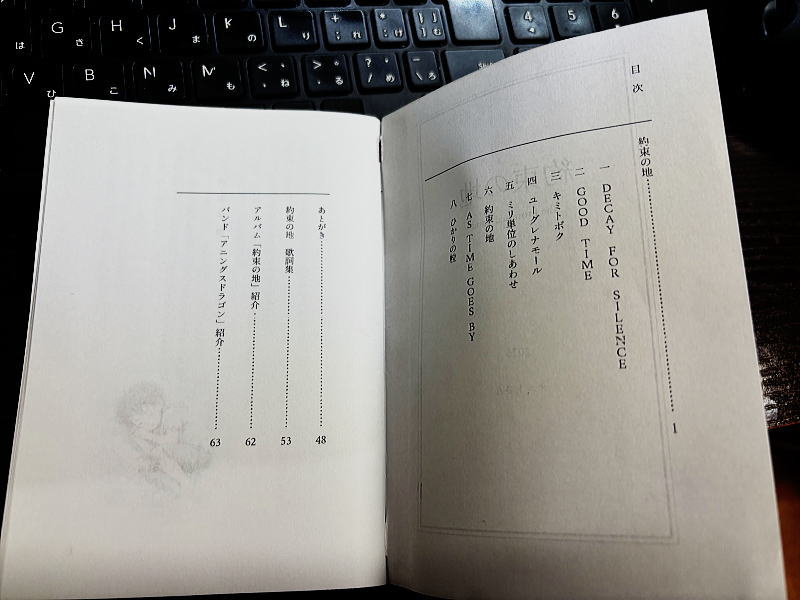 G H J K L + * } ]
は き く ま の り れ け む
4 5 6
V B N M < , > . ? / \
ひ こ み も ね る め ろ
目次
約束の地……………………1
一 DECAY FOR SILENCE
二 GOOD TIME
三 キミトボク
四 ユーグレナモール
五 ミリ単位のしあわせ
六 約束の地
七 AS TIME GOES BY
八 ひかりの
あとがき……………………48
約束の地 歌詞集……………………53
アルバム「約束の地」紹介……………………62
バンド「アニングスドラゴン」紹介……………………63